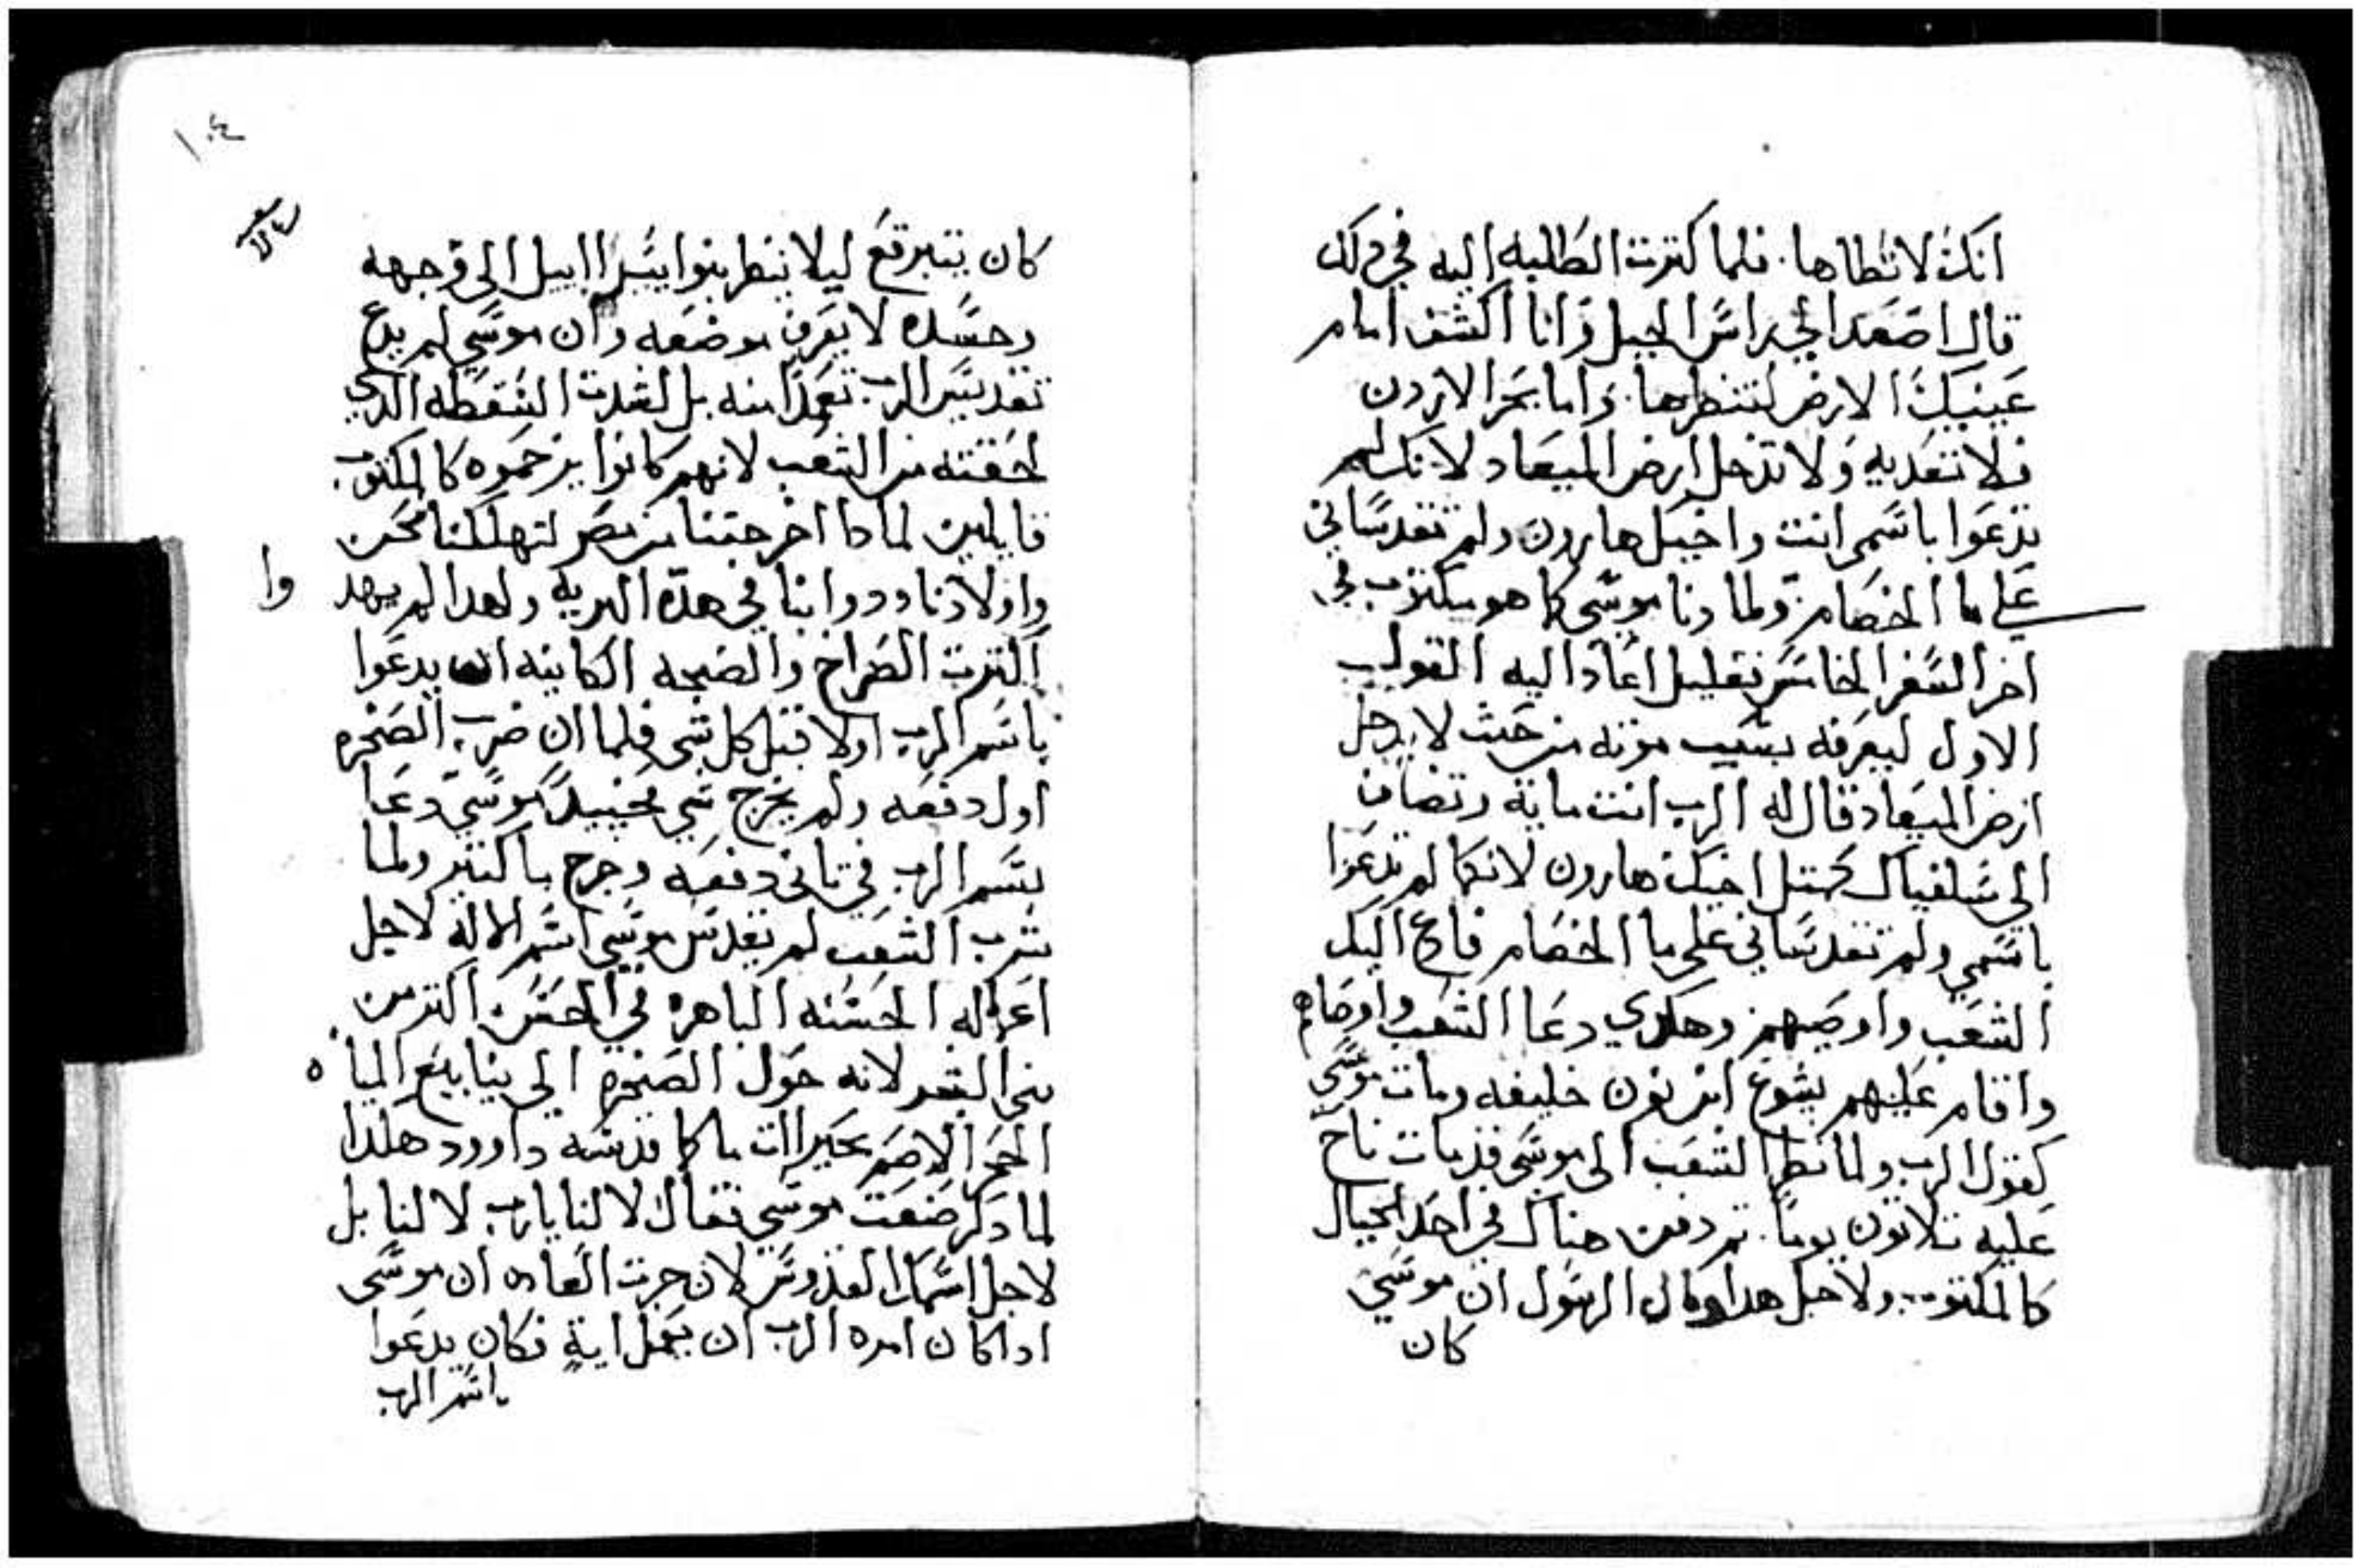 انك لا تطاها. فلما كترت الطلبه اليه في دلك
قال اصعد الي راس الجبل وانا اكشف امام
عينيك الارض لتنظرها. واما بحر الاردن
فلا تعديه ولا تدخل ارض الميعاد لانك لم
تدعوا باسمي انت واخيك هارون ولم تقدساني
علي ما الخصام ولما دنا موسي كما هو مكتوب في
اخر السفر الخامس بقليل اعاد اليه القول
الاول ليعرفه بسبب موته من حيث لا يدخل
ارض الميعاد قال له الرب انت مايت وتضاف
الي سلفياك كمتل اخيك هارون لانكما لم تدعوا
باسمي ولم تقدساني علي ما الخصام فادع اليك
الشعب واوصيهم وهكدي دعا الشعب واوصاهم
واقام عليهم يشوع ابن نون خليفه ومات موسي
كقول الرب ولما نظر الشعب الي موسي قد مات ناح
عليه تلاتون يوما. تم دفن هناك في احد الجبال
كالمكتوب ولاجل هدا قال الرسول ان موسي
كان
١٠٤
كان يتبرقع ليلا ينظر بنوا يسراييل الي وجهه
وجسده لا يعرف موضعه وان موسي لم يدع
تقديس الرب تعمدا منه بل لشدت الشقطه الدي
لحقته من الشعب لانهم كانوا يزحموه كالمكتوب
قايلين لمادا اخرجتنا من مصر لتهلكنا نحن
واولادنا ودوابنا في هده البريه ولهدا لم يهد
وا
اكترت الصراخ والضجه الكاينه ان يدعوا
باسم الرب اولا قبل كل شي فلما ان ضرب الصخره
اول دفعه ولم يخرج شي فحينيد موسي دعا
بسم الرب في تاني دفعه وخرج ما كتير ولما
شرب الشعب لم يقدس موسي اسم الاله لاجل
اعماله الحسنه الباهره في الحسن اكتر من
بني البشر لانه حول الصخره الي ينابيع المياه
الحجر الاصم بحيرات ما كما قدسه داوود هكدا
لما دكر صنعت موسي فقال لا لنا يارب لا لنا بل
لاجل اسمك القدوس لان جرت العاده ان موسي
ادا كان امره الرب ان يعمل اية فكان يدعوا
باسم الرب